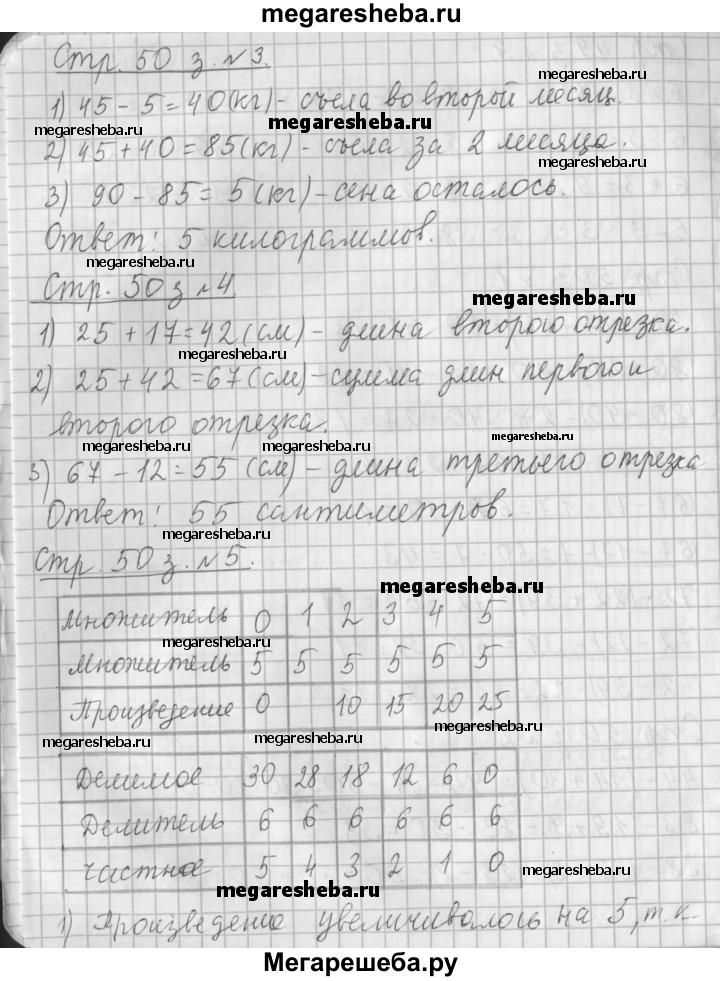 megaresheba.ru
Стр. 50 з. №3.
megaresheba.ru
1) 45 - 5 = 40 (кг) - съела во второй месяц.
megaresheba.ru
megaresheba.ru
2) 45 + 40 = 85 (кг) - съела за 2 месяца.
megaresheba.ru
3) 90 - 85 = 5 (кг) - сена осталось.
megaresheba.ru
Ответ: 5 килограммов.
megaresheba.ru
Стр. 50 з №4.
megaresheba.ru
1) 25 + 17 = 42 (см) - длина второго отрезка.
megaresheba.ru
2) 25 + 42 = 67 (см) - сумма длин первого и
второго отрезка.
megaresheba.ru
megaresheba.ru
megaresheba.ru
3) 67 - 12 = 55 (см) - длина третьего отрезка
Ответ: 55 сантиметров.
megaresheba.ru
Стр. 50 з. №5.
megaresheba.ru
Множитель 0 1 2 3 4 5
megaresheba.ru
Множитель 5 5 5 5 5 5
megaresheba.ru
Произведение 0 10 15 20 25
megaresheba.ru
megaresheba.ru
megaresheba.ru
Делимое 30 28 18 12 6 0
Делитель 6 6 6 6 6 6
частное 5 4 3 2 1 0
megaresheba.ru
megaresheba.ru
1) Произведение увеличивалось на 5, т.к.
Мегарешеба.ру